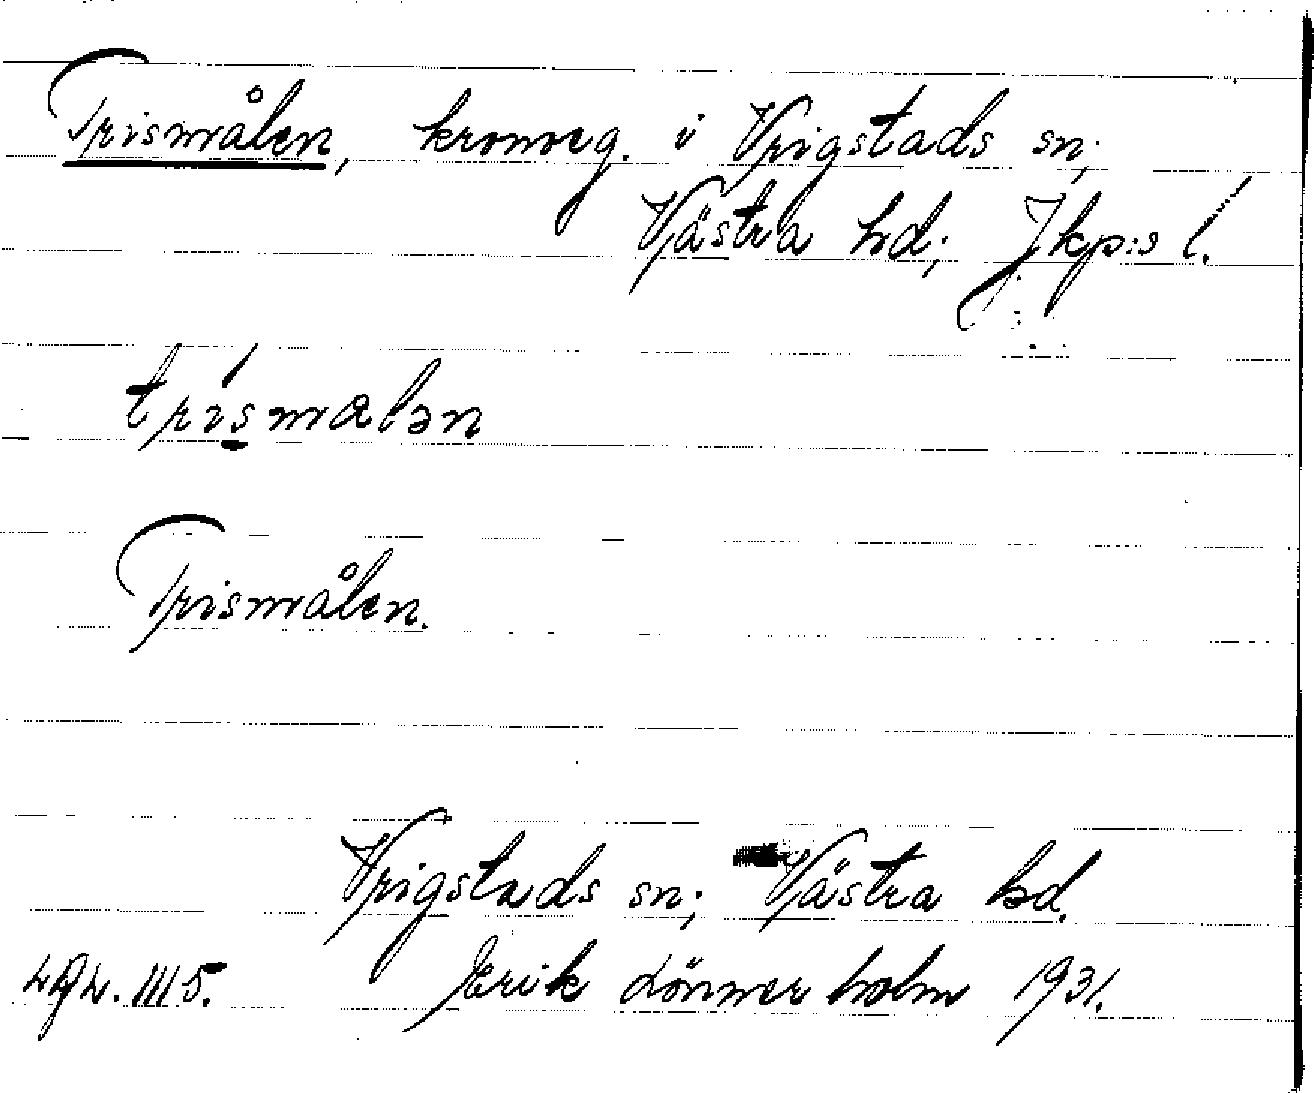 Trismålen, kronoeg. i Vrigstads sn;
Västra hd; Jkp:s l.
trismalən
Trismålen.
Vrigstads sn; Västra hd.
III 5. Erik Lönnerholm 1931.